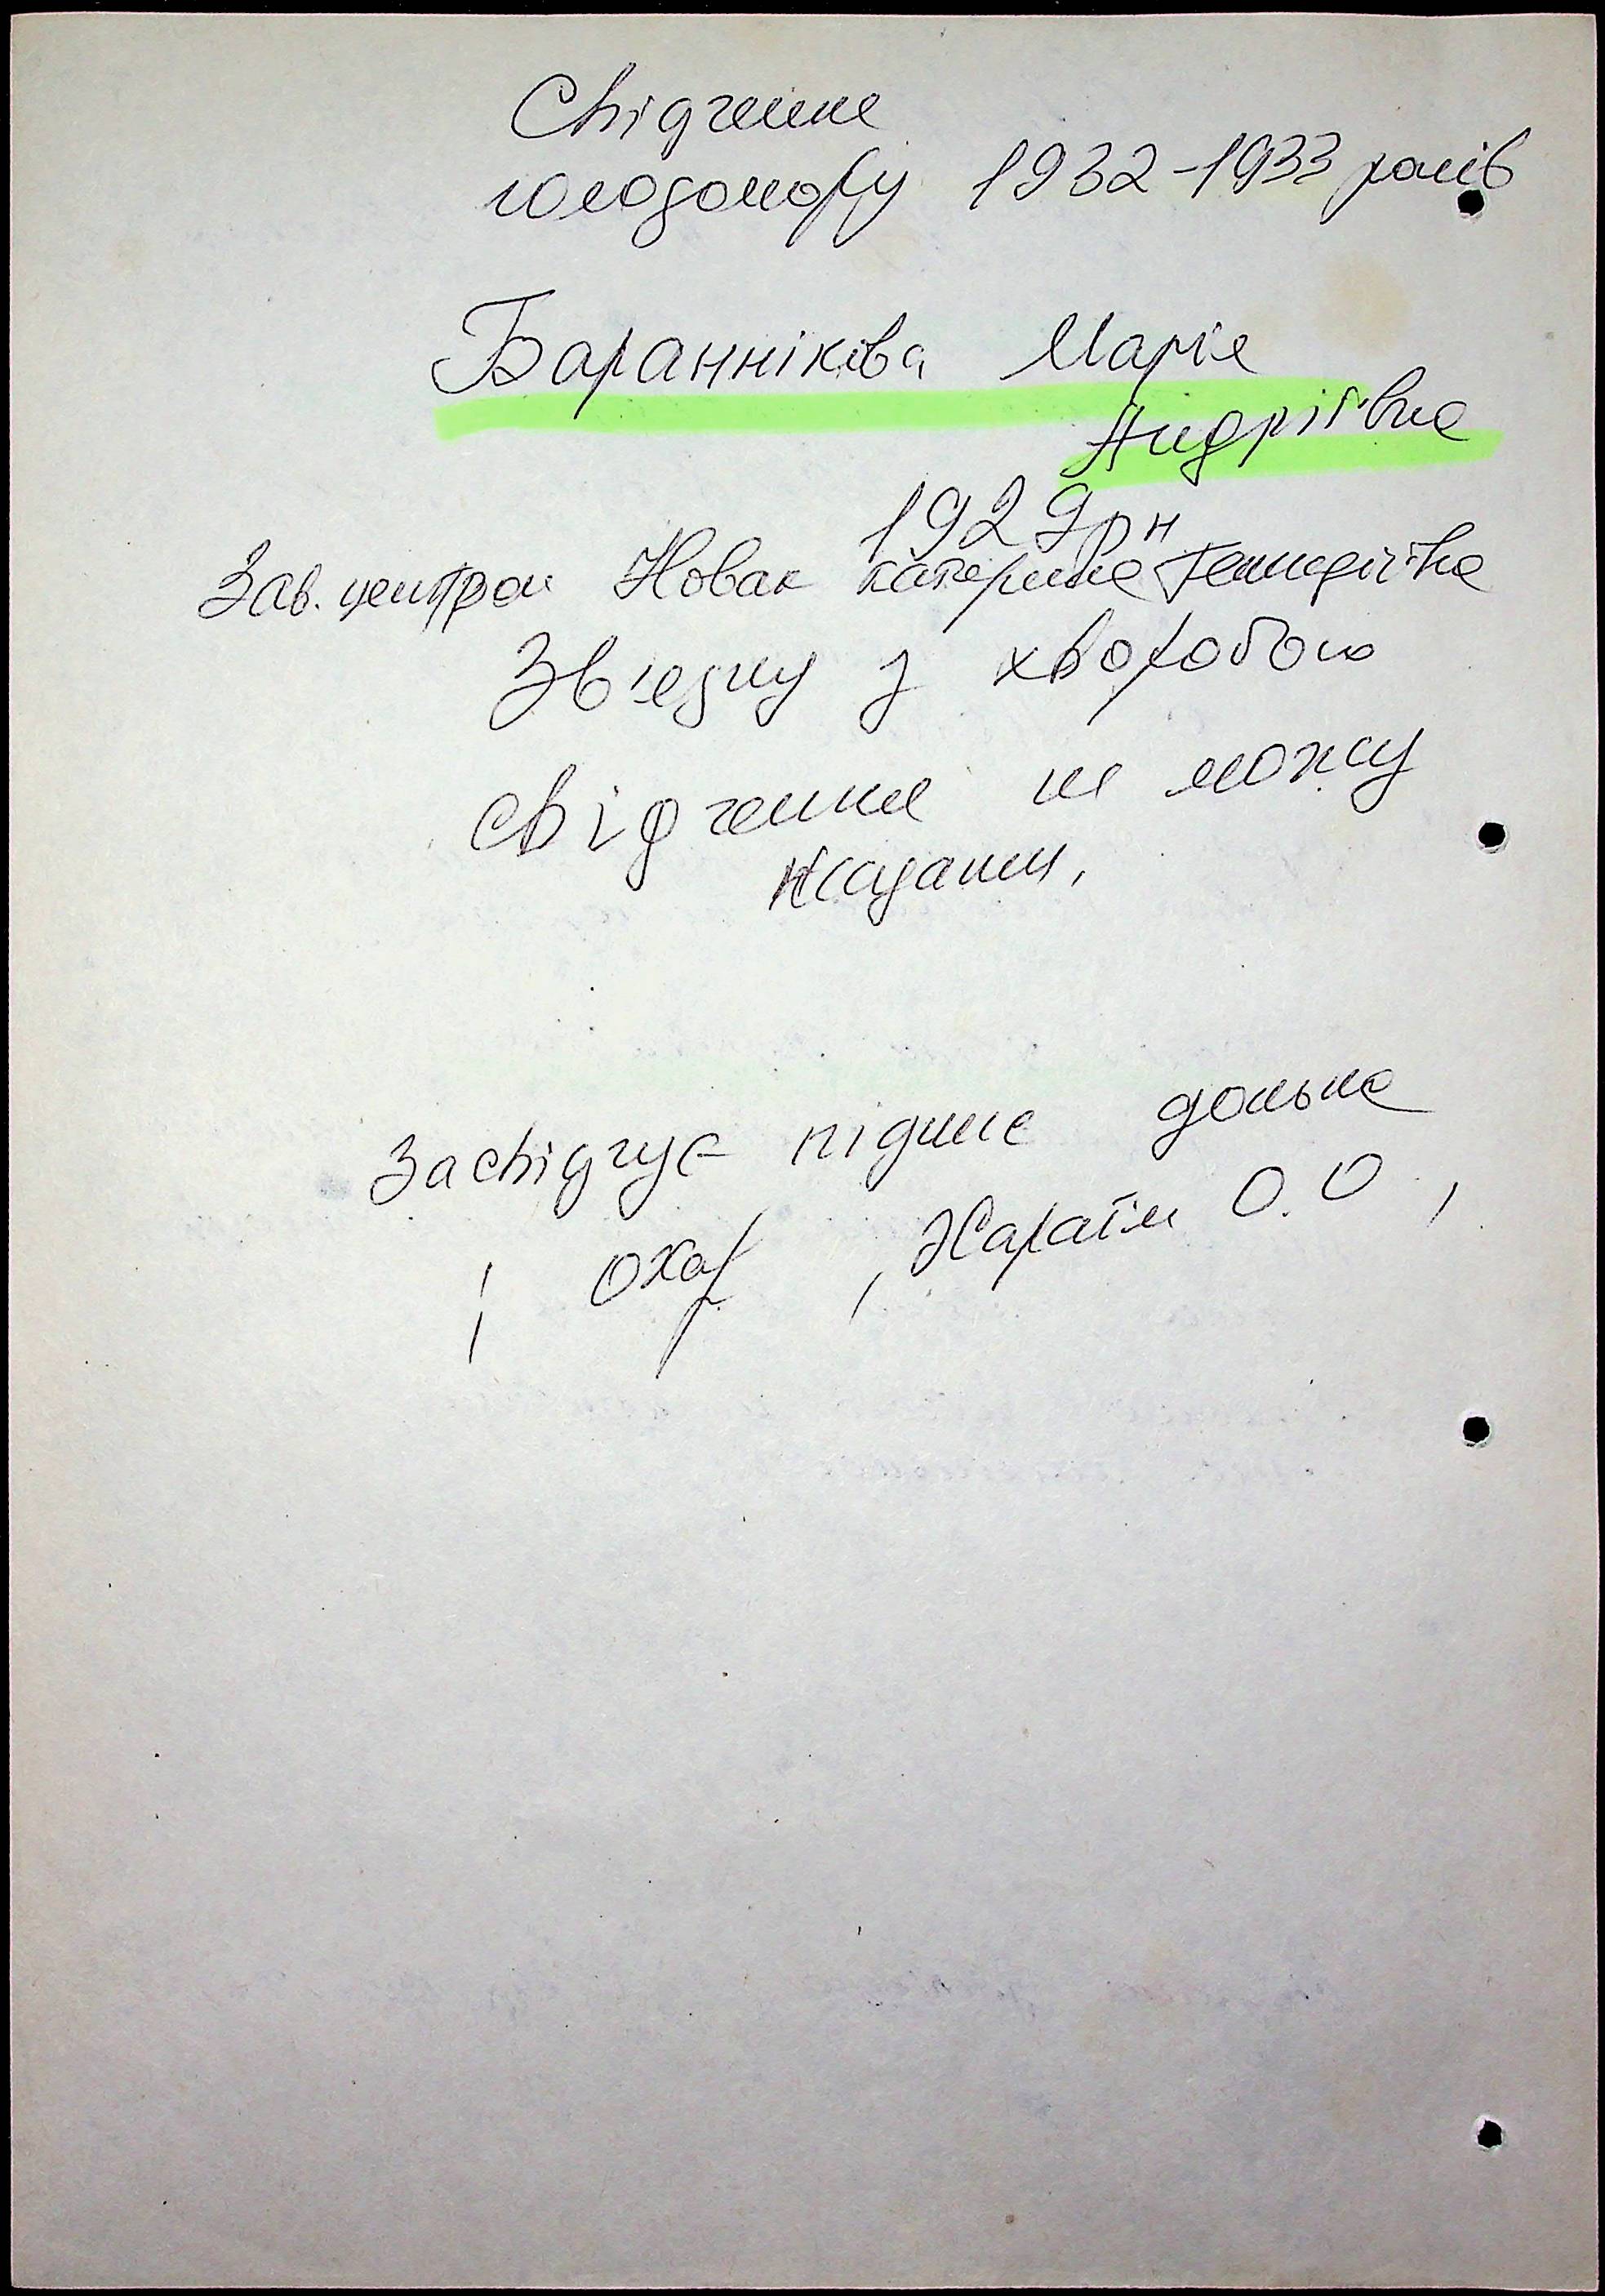 Свідчення
голодомору 1932-1933 років
Бараннікова Марія
Андріївна
1929 рн
Зав. центром Новак Катерина Генадіївна
Зв'язку з хворобою
свідчення не можу
надати,
Засвідчує підпис донька
/ /, Караїм О.О,